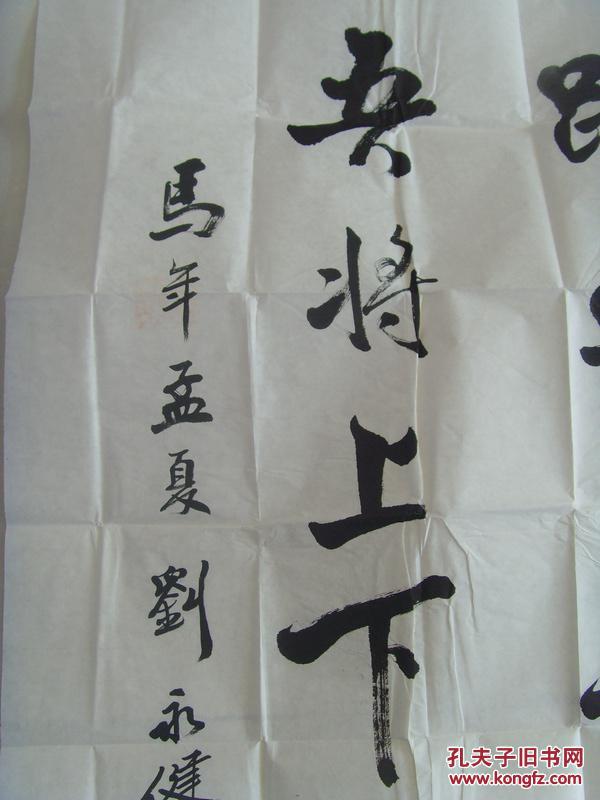 吾将上下
馬年孟夏 劉永健
孔夫子旧书网
www.kongfz.com